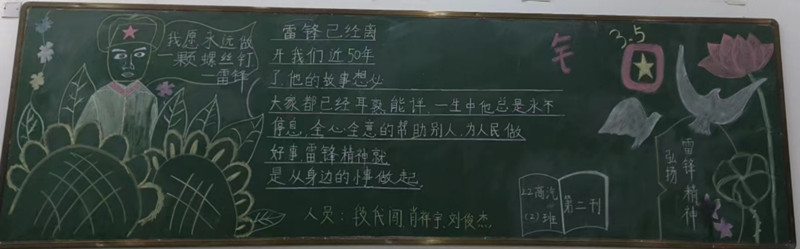 我愿永远做
一颗螺丝钉
—雷锋
雷锋已经离
开我们近50年
了,他的故事想必
大家都已经耳熟能详,一生中他总是永不
停息,全心全意的帮助别人,为人民做
好事,雷锋精神就
是从身边的事做起。
人员:
肖祥宇.刘俊杰.
3.5
弘扬
雷锋精神
22高汽
(2)班
第二刊